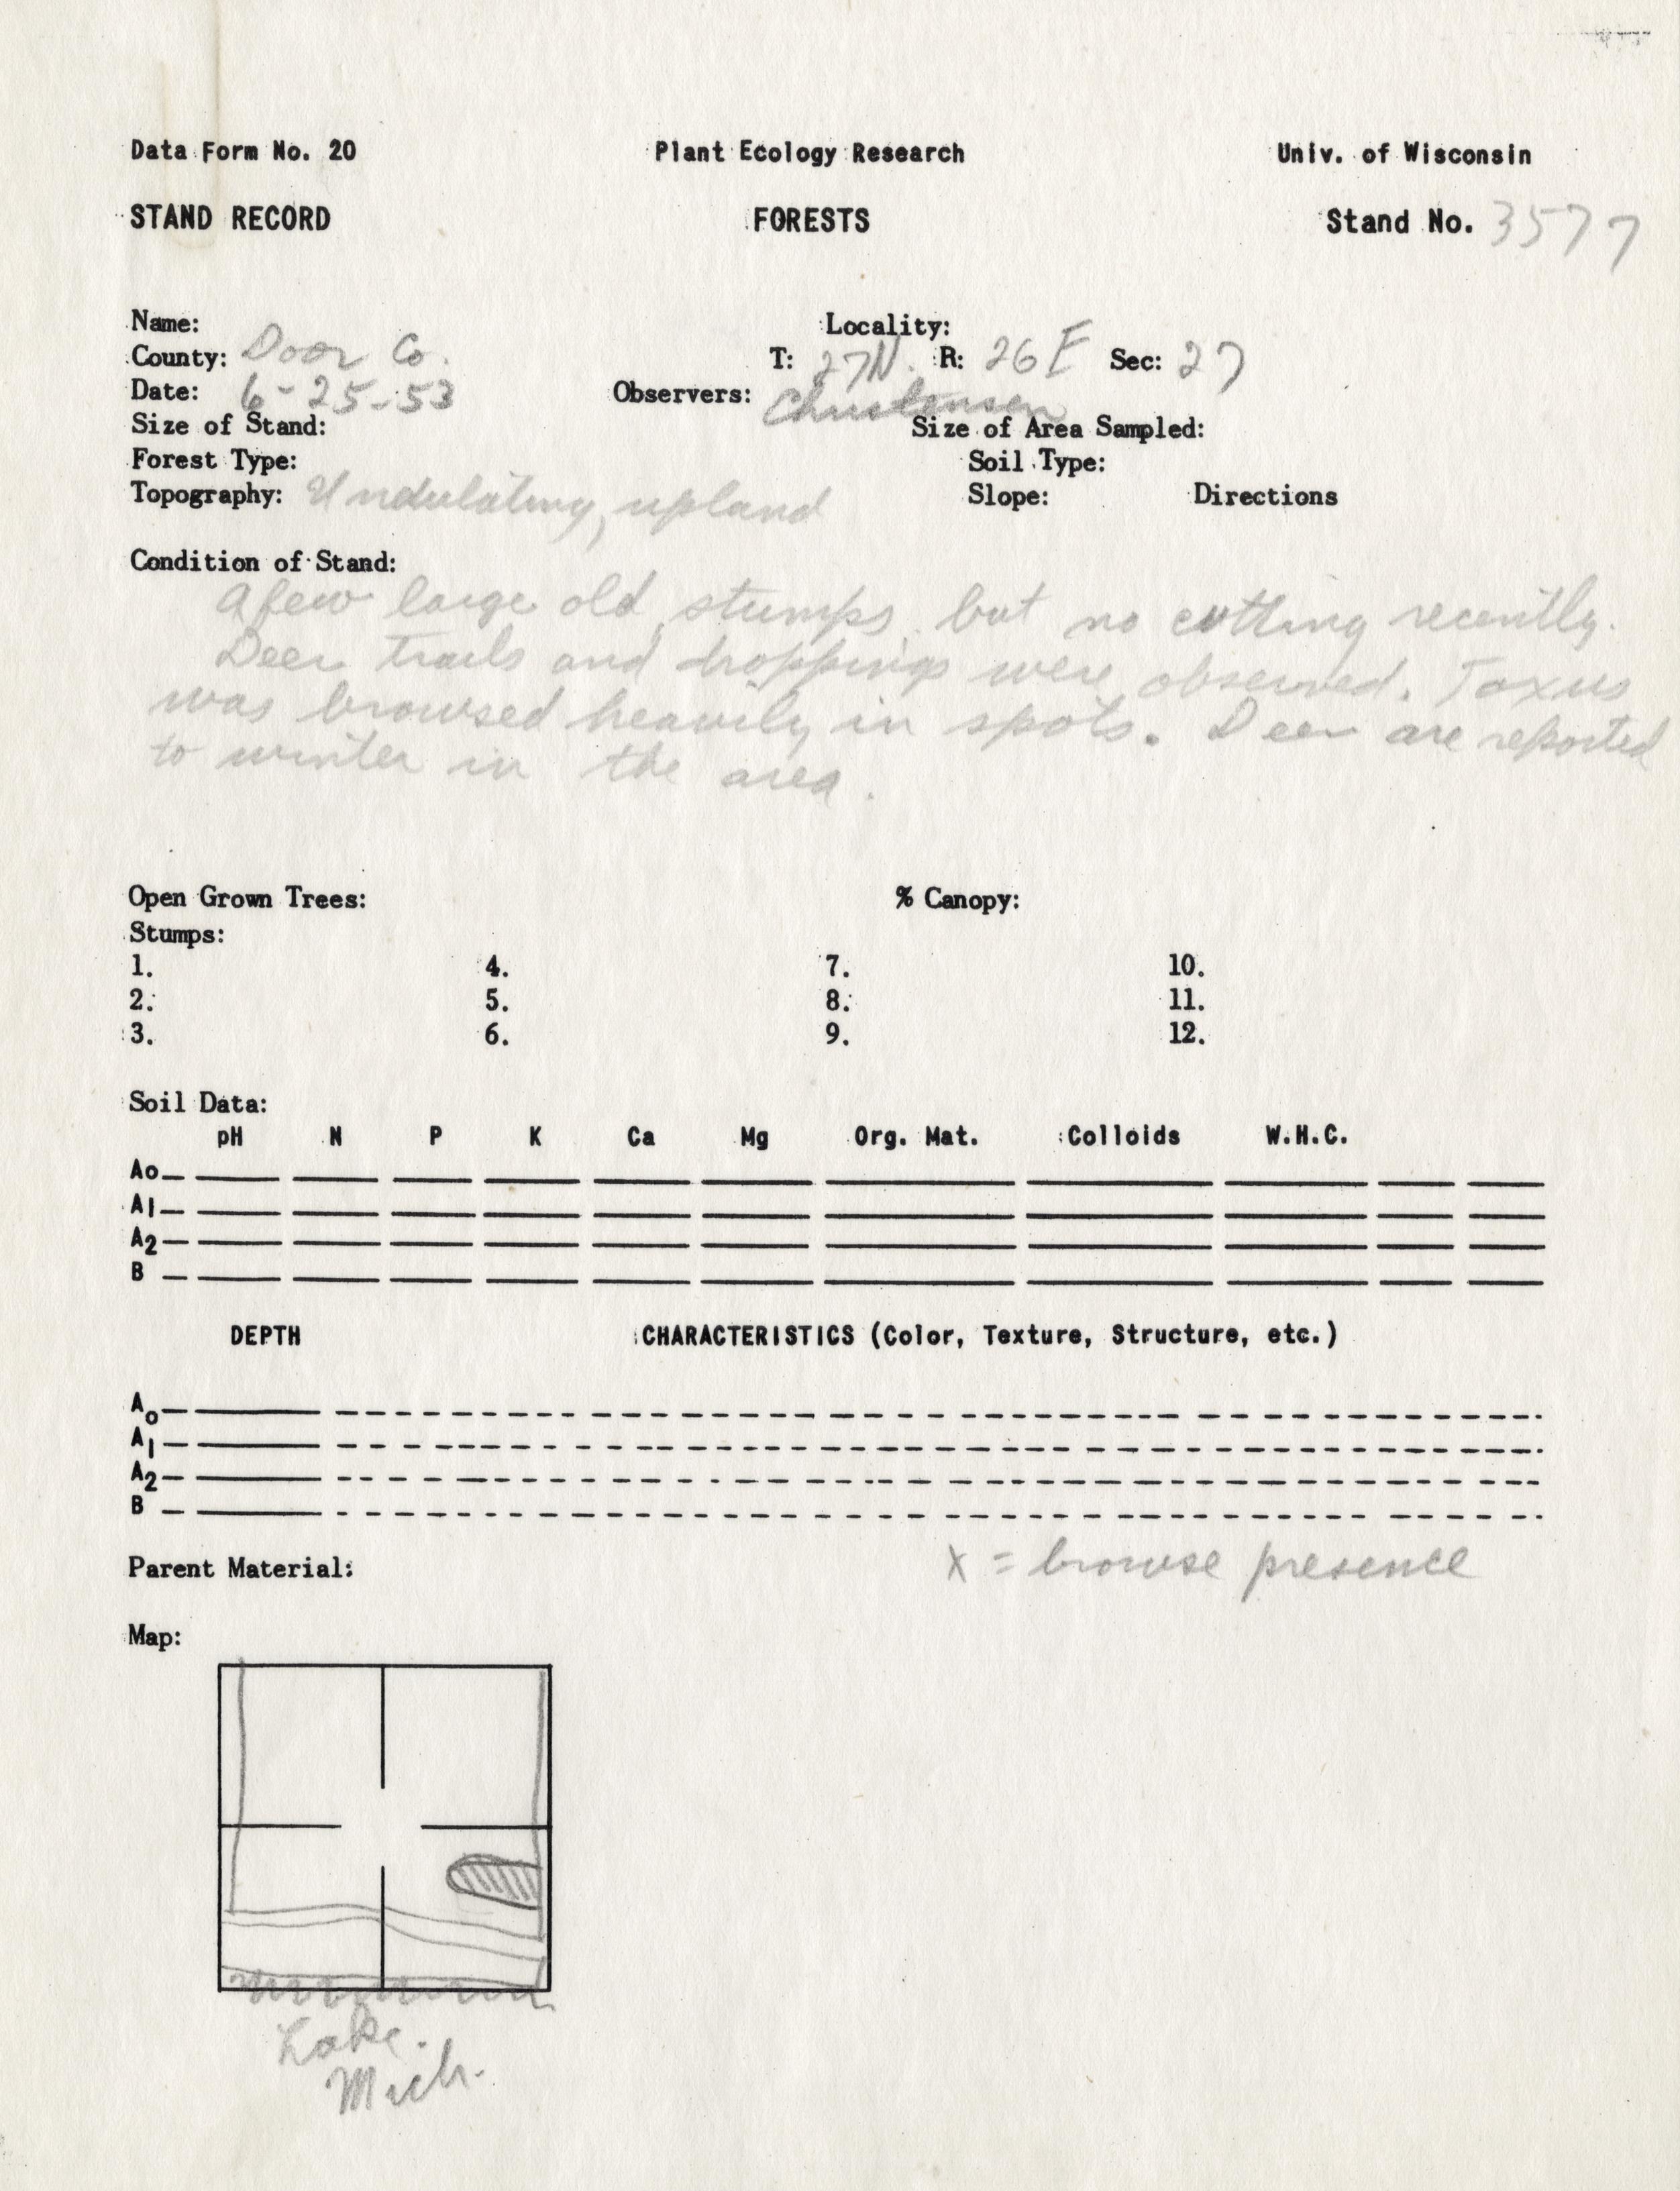 Data Form No. 20 Plant Ecology Research Univ. of Wisconsin
STAND RECORD FORESTS Stand No. 3577
Name: Locality:
County: Door Co. T: 27N. R: 26E Sec: 27
Date: 6-25-53 Observers: Christensen
Size of Stand: Size of Area Sampled:
Forest Type: Soil Type:
Topography: Undulating, upland Slope: Directions
Condition of Stand:
A few large old stumps but no cutting recently.
Deer trails and droppings were observed. Taxus
was browsed heavily in spots. Deer are reported
to winter in the area.
Open Grown Trees: % Canopy:
Stumps:
1. 4. 7. 10.
2. 5. 8. 11.
3. 6. 9. 12.
Soil Data:
pH N P K Ca Mg Org. Mat. Colloids W.H.C.
Ao
A1
A2
B
DEPTH CHARACTERISTICS (Color, Texture, Structure, etc.)
Ao
A1
A2
B
Parent Material: x = browse presence
Map:
Lake.
Mich.